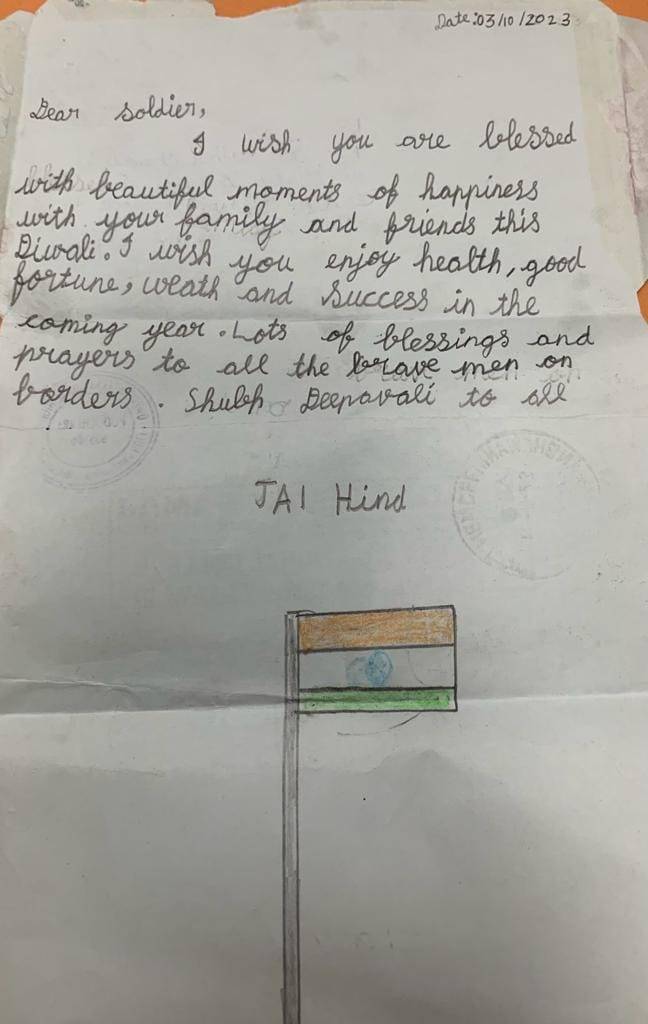 Date:03/10/2023
Dear soldier,
I wish you are blessed
with beautiful moments of happiness
with your family and friends this
Diwali. I wish you enjoy health, good
fortune, weath and success in the
coming year. Lots of blessings and
prayers to all the brave men on
borders. Shubh Deepavali to all
JAI Hind